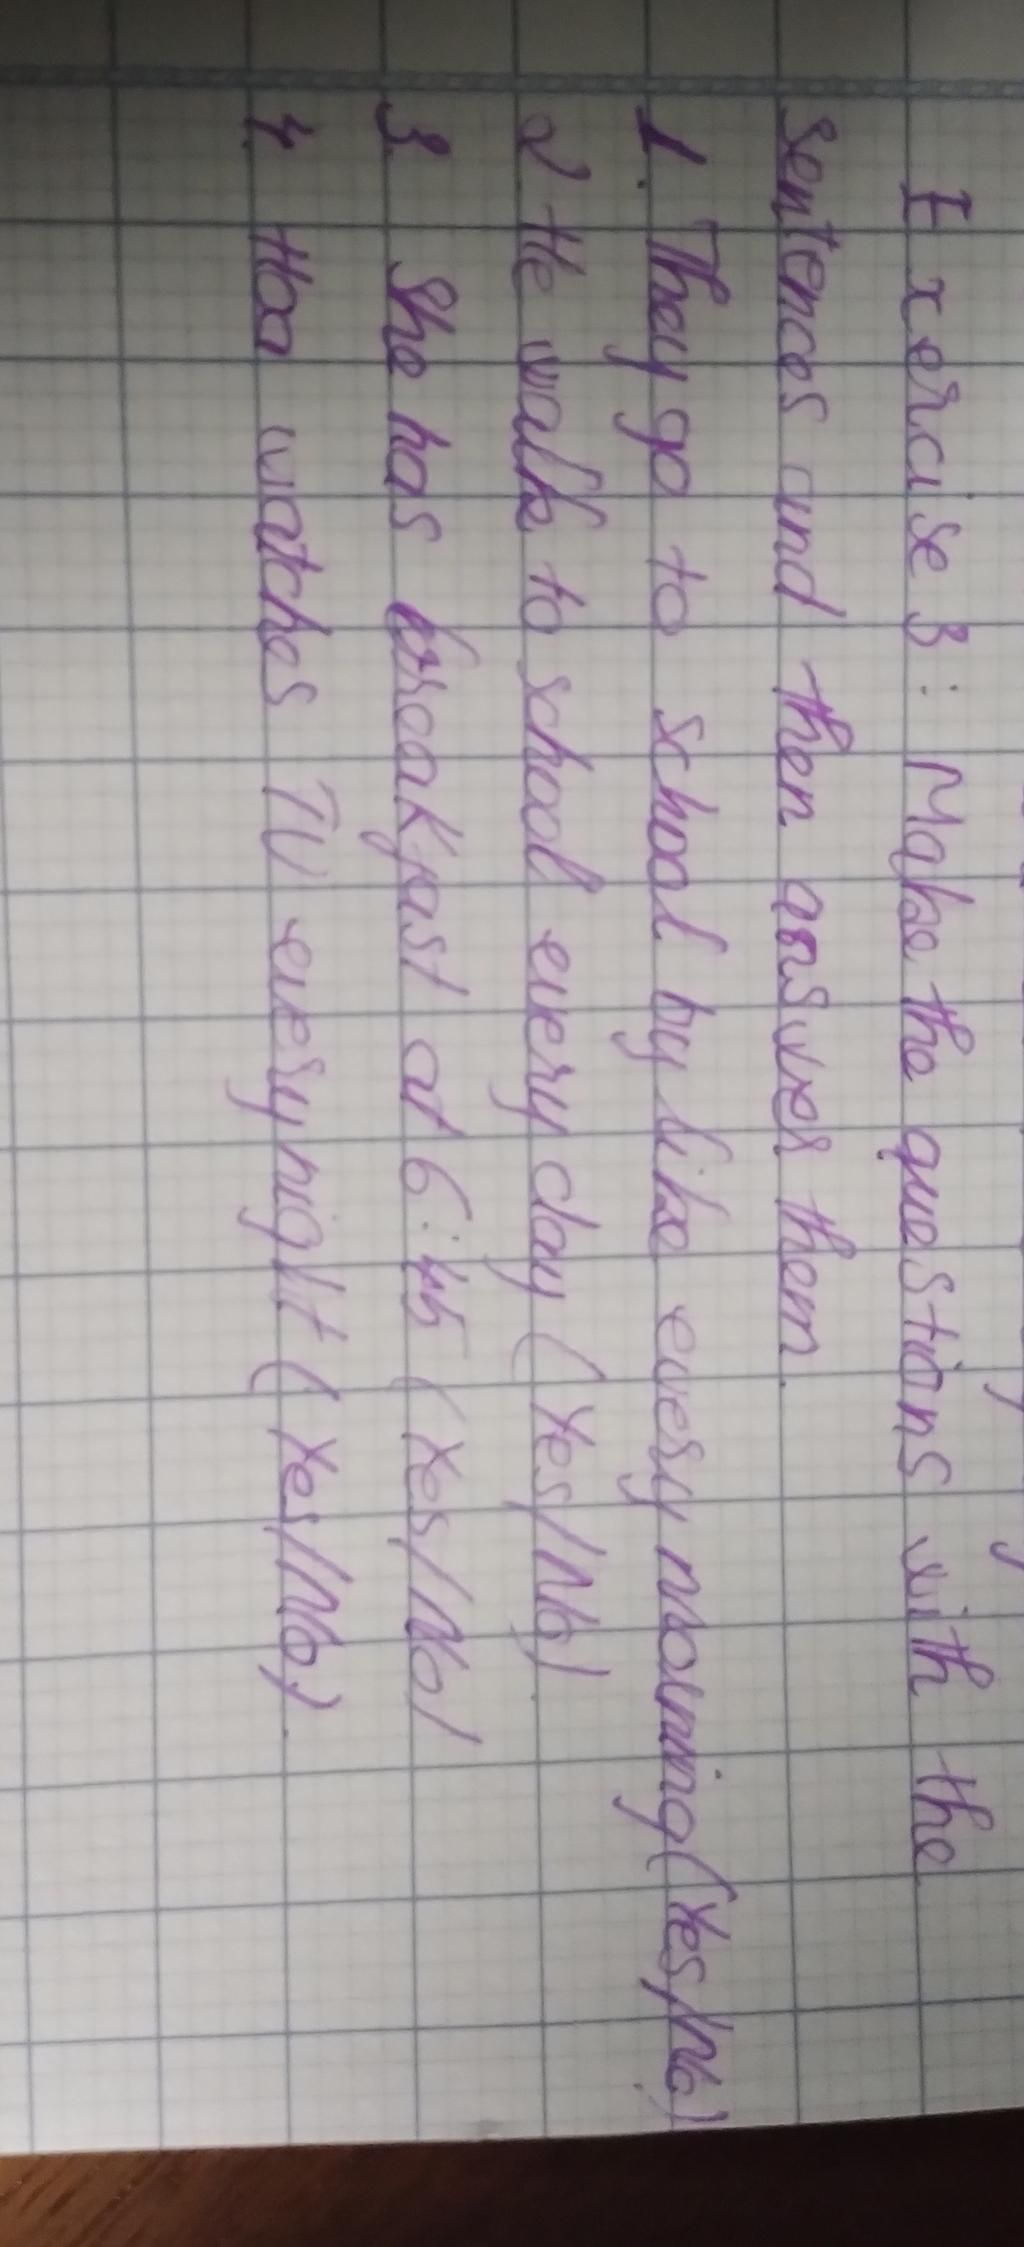 Exercise 3: Make the questions with the
sentences and then answer them.
1. They go to school by bike every morning (Yes/No)
2 He walk to school every day (Yes/No).
3. She has breakfast at 6:45 (Yes/No)
4. Hoa watches TV every night (Yes/No).